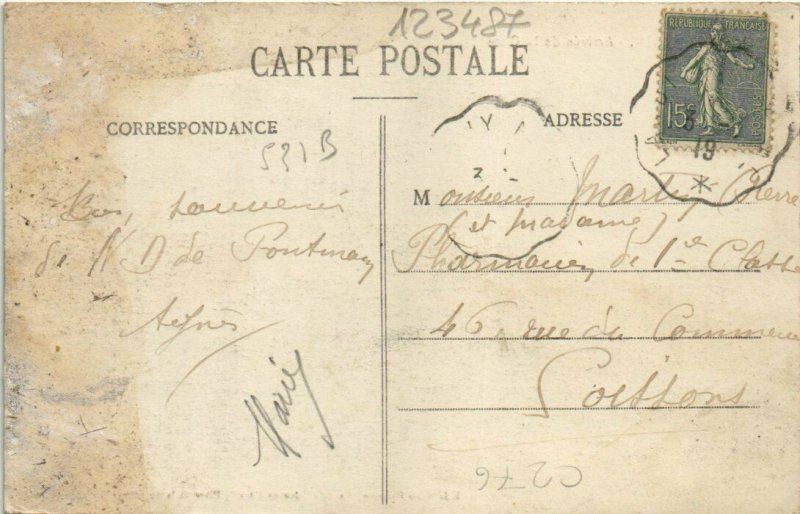 123487
CARTE POSTALE
RÉPUBLIQUE FRANÇAISE
15c
POSTES
19
CORRESPONDANCE
ADRESSE
531 B
Monsieur Martin Pierre
(et Madame)
Pharmacien de 1re Classe
46 rue du Commerce
Soissons
souvenirs
de N D de Pontmain
Agnès
Marie
C276